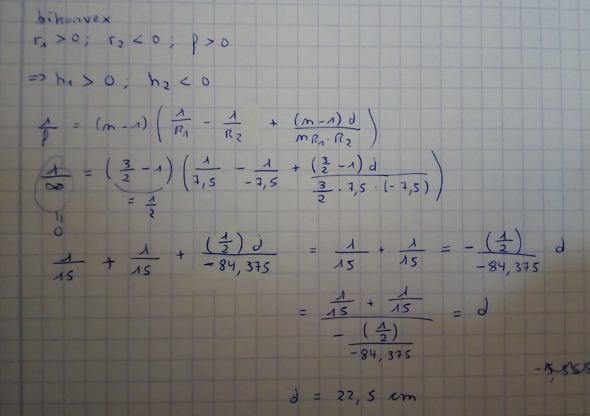 bikonvex
r₁ > 0 ; r₂ < 0 ; f > 0
=> h₁ > 0 ; h₂ < 0
1/f = (n-1) ( 1/R₁ - 1/R₂ + (n-1) d / n R₁ · R₂ )
1/∞ = ( 3/2 - 1 ) ( 1/7,5 - 1/-7,5 + ( 3/2 - 1 ) d / 3/2 · 7,5 · (-7,5) )
= 1/2
= 0
1/15 + 1/15 + (1/2) d / -84,375 = 1/15 + 1/15 = - (1/2) / -84,375 d
= 1/15 + 1/15 / - (1/2) / -84,375 = d
d = 22,5 cm